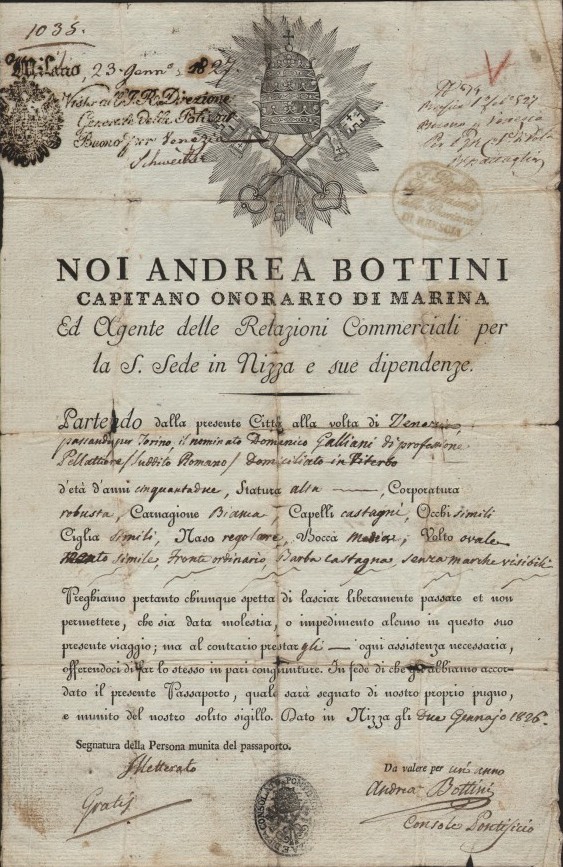 1035.
Milano, 23. Genn.° 1827.
Visto all' I. R. Direzione
Generale della Polizia
Buono per Venezia
NOI ANDREA BOTTINI
CAPITANO ONORARIO DI MARINA
Ed Agente delle Relazioni Commerciali per
la S. Sede in Nizza e sue dipendenze.
Partendo dalla presente Città alla volta di Venezia,
passando per Torino, il nominato Domenico Galliani di professione
Pellattiere / Suddito Romano / domiciliato in Viterbo
d'età d'anni cinquantadue, Statura alta, Corporatura
robusta, Carnagione Bianca, Capelli castagni, Occhi simili
Ciglia simili, Naso regolare, Bocca, Volto ovale
Mento simile, fronte ordinario, Barba castagna, senza marche visibili
Preghiamo pertanto chiunque spetta di lasciar liberamente passare et non
permettere, che sia data molestia, o impedimento alcuno in questo suo
presente viaggio; ma al contrario prestargli ogni assistenza necessaria,
offerendoci di far lo stesso in pari congiunture. In fede di che gli abbiamo accor-
dato il presente Passaporto, quale sarà segnato di nostro proprio pugno,
e munito del nostro solito sigillo. Dato in Nizza gli due Gennajo 1826.
Segnatura della Persona munita del passaporto.
Illetterato
Da valere per un' anno
Gratis
Andrea Bottini
Console Pontificio